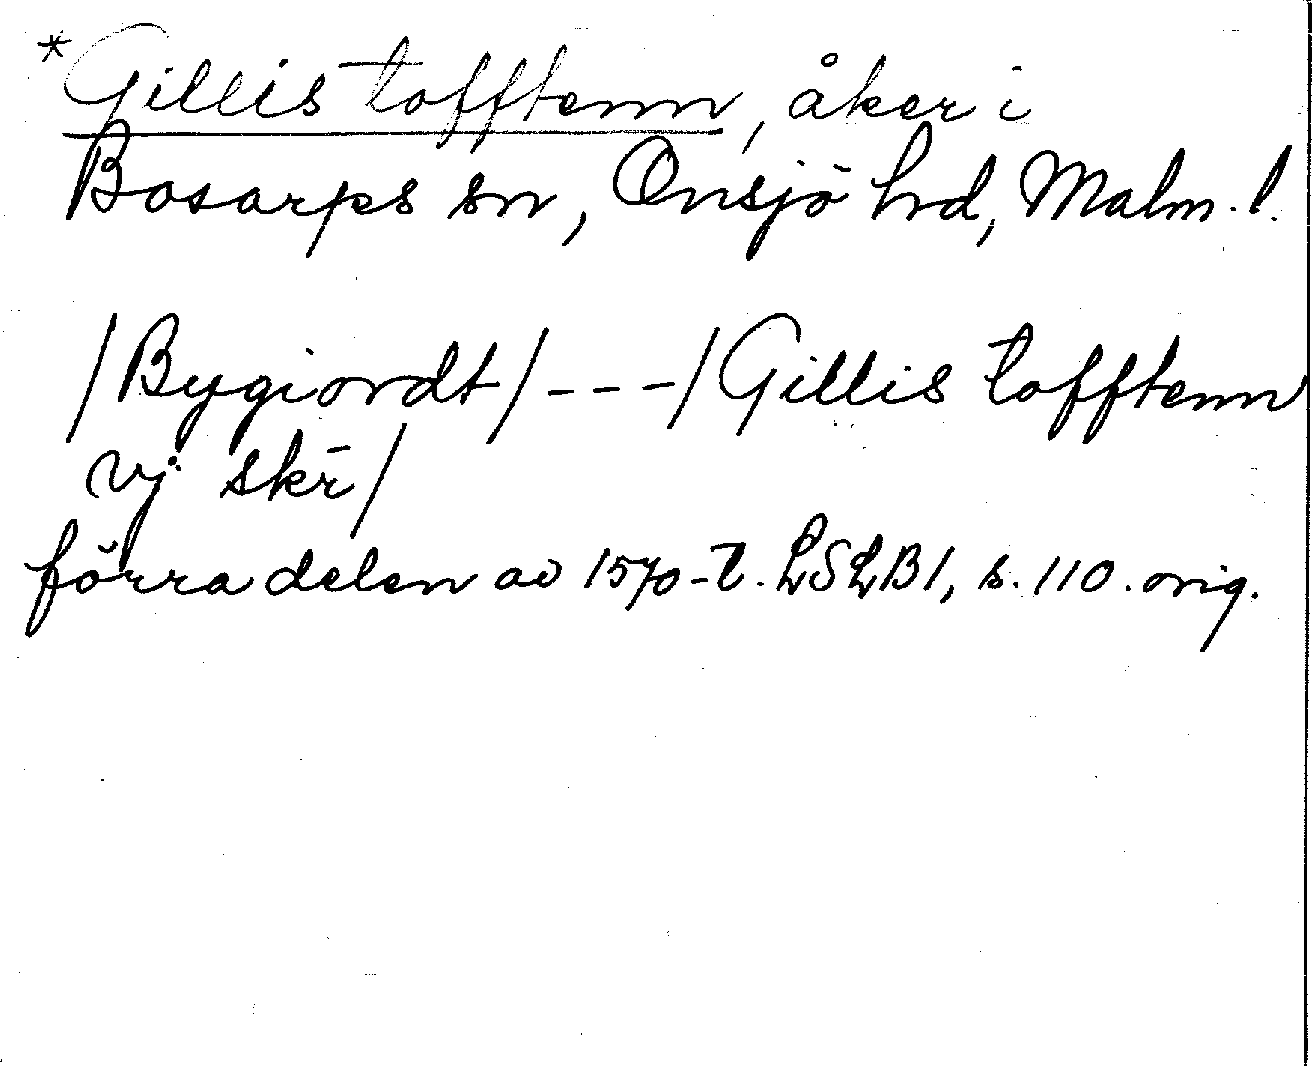 *Gillis tofftenn, åker i
Bosarps sn, Onsjö hrd, Malm. l.
/Bygiordt/---/Gillis tofftenn
vj skr̄/
förra delen av 1570-t. LSLB1, s. 110. orig.